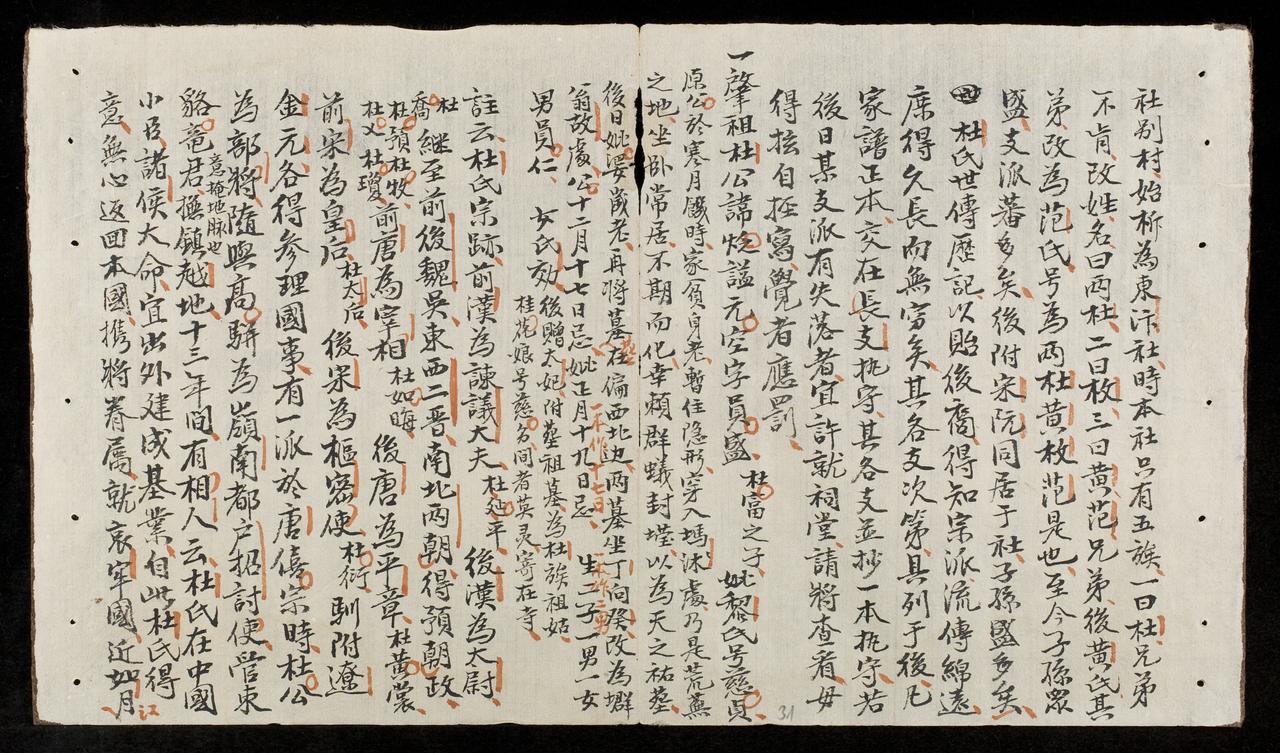 社别村始析為東汴社時本社只有五族一曰杜兄弟
不肯改姓名曰两杜二曰枚三曰黄范兄弟後黄氏其
弟改為范氏号為两杜黄枚范是也至今子孫眾
盛支派蕃多矣後附宋阮同居于社子孫盛多矣
杜氏世傳歷記以貽後裔得知宗派流傳綿遠
庶得久長而無窮矣其各支次第具列于後凡
家譜正本交在長支执守其各支並抄一本执守若
後日某支派有失落者宜許就祠堂請將查看毋
得擅自抂寫覺者應罰
一肇祖杜公諱烷謚元空字員盛 杜富之子 妣黎氏号慈貞
原公於寒月饑時家貧身老暫住隐形穿入瑪沭處乃是荒蕪
之地坐卧常居不期而化幸頼群蟻封墐以為天之祐墓
後日妣婆歲老再將墓在偏西北边两墓坐丁向癸改為墠
翁故處公十二月十七日忌妣正月十九日忌 生二子一男一女
一本作十七日
男員仁 女氏効 後贈太妃附墓祖墓為杜族祖姑
桂花娘号慈名间者英灵寄在寺
註云杜氏宗跡前漢為諫議大夫 杜延平 後漢為太尉
杜喬 継至前後魏吳東西二晋南北两朝得預朝政
杜預杜牧杜乂杜瓊 前唐為宰相 杜如晦 後唐為平章 杜黄裳
前宋為皇后 杜太后 後宋為樞密使 杜衍 馴附遼
金元各得参理國事有一派於唐僖宗時杜公
為部將隨與高駢為嶺南都户招討使管東
貉竜君 意掩地脉也 撫鎮越地十三年間有相人云杜氏在中國
小臣諸侯大命宜出外建成基業自此杜氏得
意無心返回本國携將眷属就哀牢國近如月
江
31